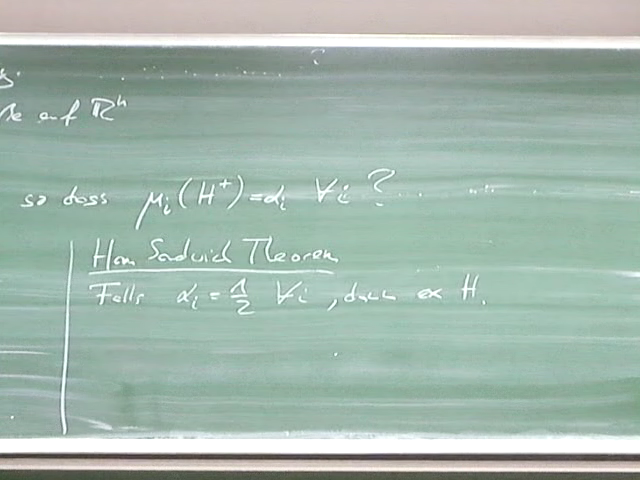 auf ℝⁿ
so dass μᵢ(H⁺)=αᵢ ∀i ?
Ham Sandwich Theorem
Falls αᵢ = 1/2 ∀i, dann ex H.